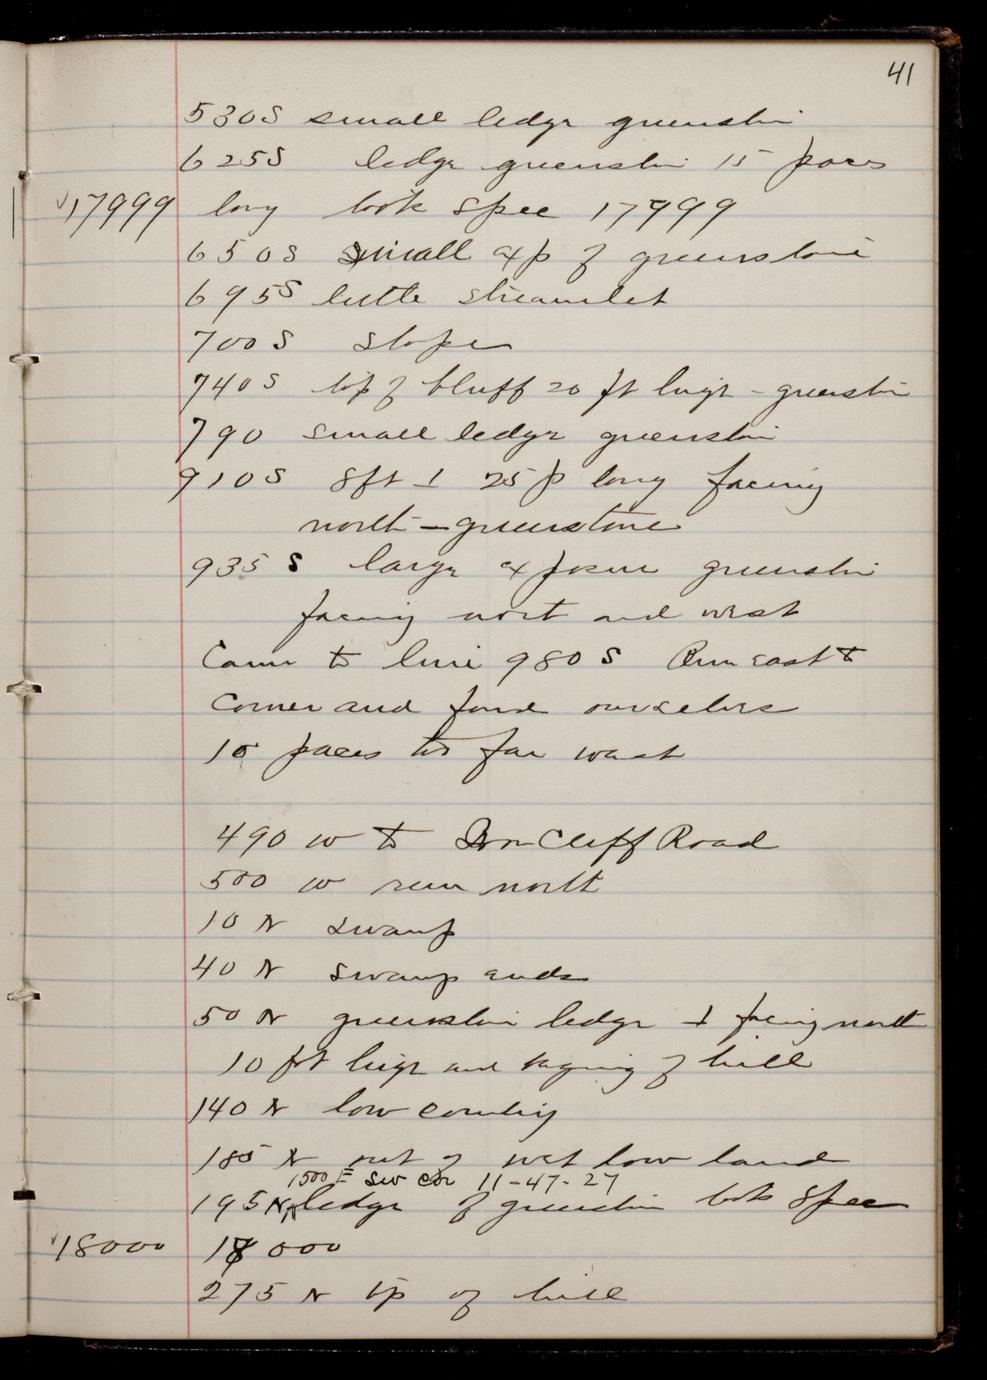 41
530 S small ledge greenstone
625 S ledge greenstone 15 paces
17999 long took spec 17999
650 S small exp of greenstone
695 S little streamlet
700 S slope
740 S top of bluff 20 ft high - greenstone
790 small ledge greenstone
910 S 8ft ⊥ 25 p long facing
north - greenstone
935 S large exposure greenstone
facing north and west
Came to line 980 S Run east to
corner and found ourselves
10 paces too far west
490 W to Iron Cliff Road
500 W run north
10 N swamp
40 N swamp ends
50 N greenstone ledge ⊥ facing north
10 ft high and of hill
140 N low country
185 N out of wet low land
1500 E SW cor 11-47-27
195 N ledge of greenstone took spec
18000 18000
275 N top of hill